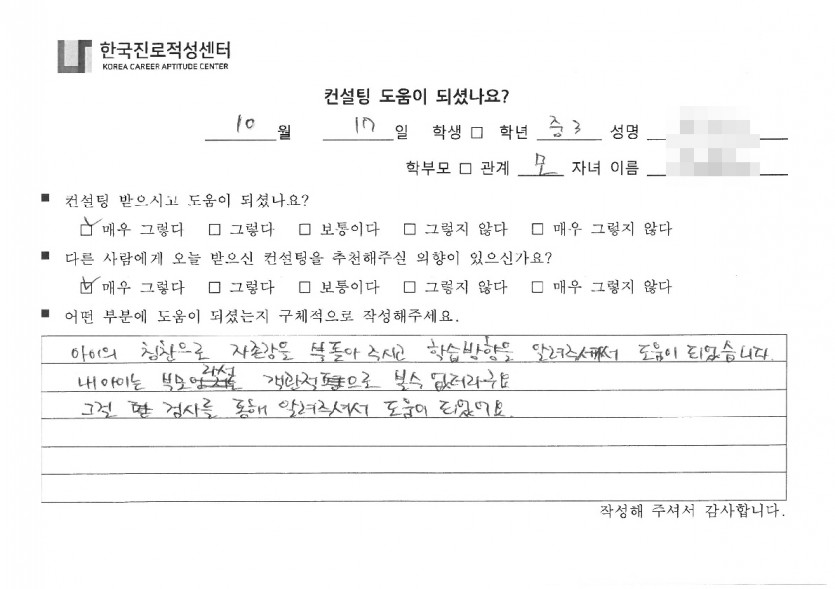 한국진로적성센터
KOREA CAREER APTITUDE CENTER
컨설팅 도움이 되셨나요?
10 월 17 일 학생 □ 학년 중3 성명
학부모 □ 관계 모 자녀 이름
■ 컨설팅 받으시고 도움이 되셨나요?
☑ 매우 그렇다 □ 그렇다 □ 보통이다 □ 그렇지 않다 □ 매우 그렇지 않다
■ 다른 사람에게 오늘 받으신 컨설팅을 추천해주실 의향이 있으신가요?
☑ 매우 그렇다 □ 그렇다 □ 보통이다 □ 그렇지 않다 □ 매우 그렇지 않다
■ 어떤 부분에 도움이 되셨는지 구체적으로 작성해주세요.
아이의 칭찬으로 자존감을 북돋아 주시고 학습방향을 알려주셔서 도움이 되었습니다.
내 아이는 부모 객관적으로 볼수 없더라구요
그걸 검사를 통해 알려주셔서 도움이 되었어요.
작성해 주셔서 감사합니다.